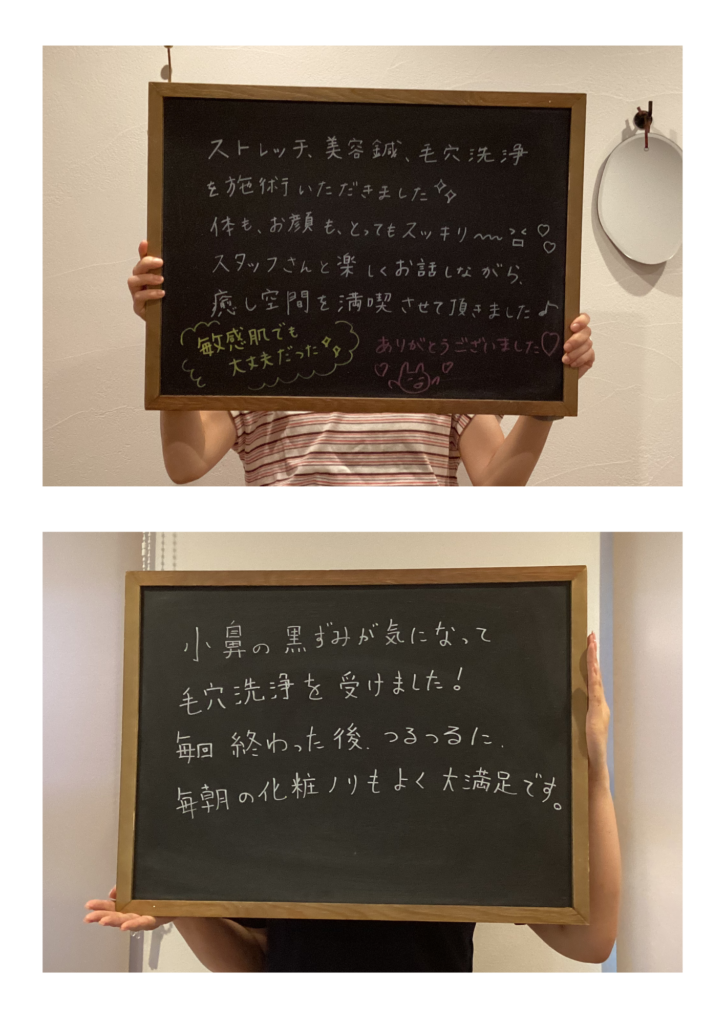 ストレッチ、美容鍼、毛穴洗浄
を施術いただきました✨
体も、お顔も、とってもスッキリ〜〜 ♡♡
スタッフさんと楽しくお話しながら、
癒し空間を満喫させて頂きました♪
敏感肌でも
大丈夫だった✨
ありがとうございました♡
小鼻の黒ずみが気になって
毛穴洗浄を受けました!
毎回 終わった後、つるつるに、
毎朝の化粧ノリもよく大満足です。